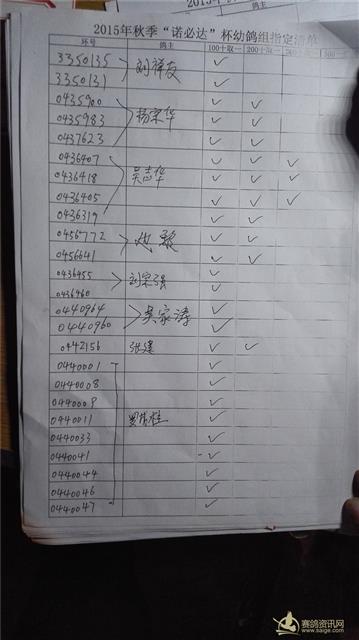 2015年秋季“诺必达”杯幼鸽组指定清单
环号 鸽主 100+取一 200+取一 500+取一
3350135 ✓
3350131 刘祥友 ✓
0435900 ✓ ✓
0435983 杨宗华 ✓ ✓
0437623 ✓ ✓
0436407 ✓ ✓ ✓
0436418 吴志华 ✓ ✓ ✓
0436405 ✓ ✓ ✓
0436319 ✓ ✓
0456772 ✓ ✓
0456641 ✓ ✓
0436455 ✓
0436460 刘宗强 ✓
0440964 ✓
0440960 吴家涛 ✓
0442156 张建 ✓ ✓
0440001 ✓
0440008 ✓
0440009 ✓
0440011 ✓
0440033 ✓
0440041 ✓
0440044 ✓
0440046 ✓
0440047 ✓
赛鸽资讯网
www.saige.com